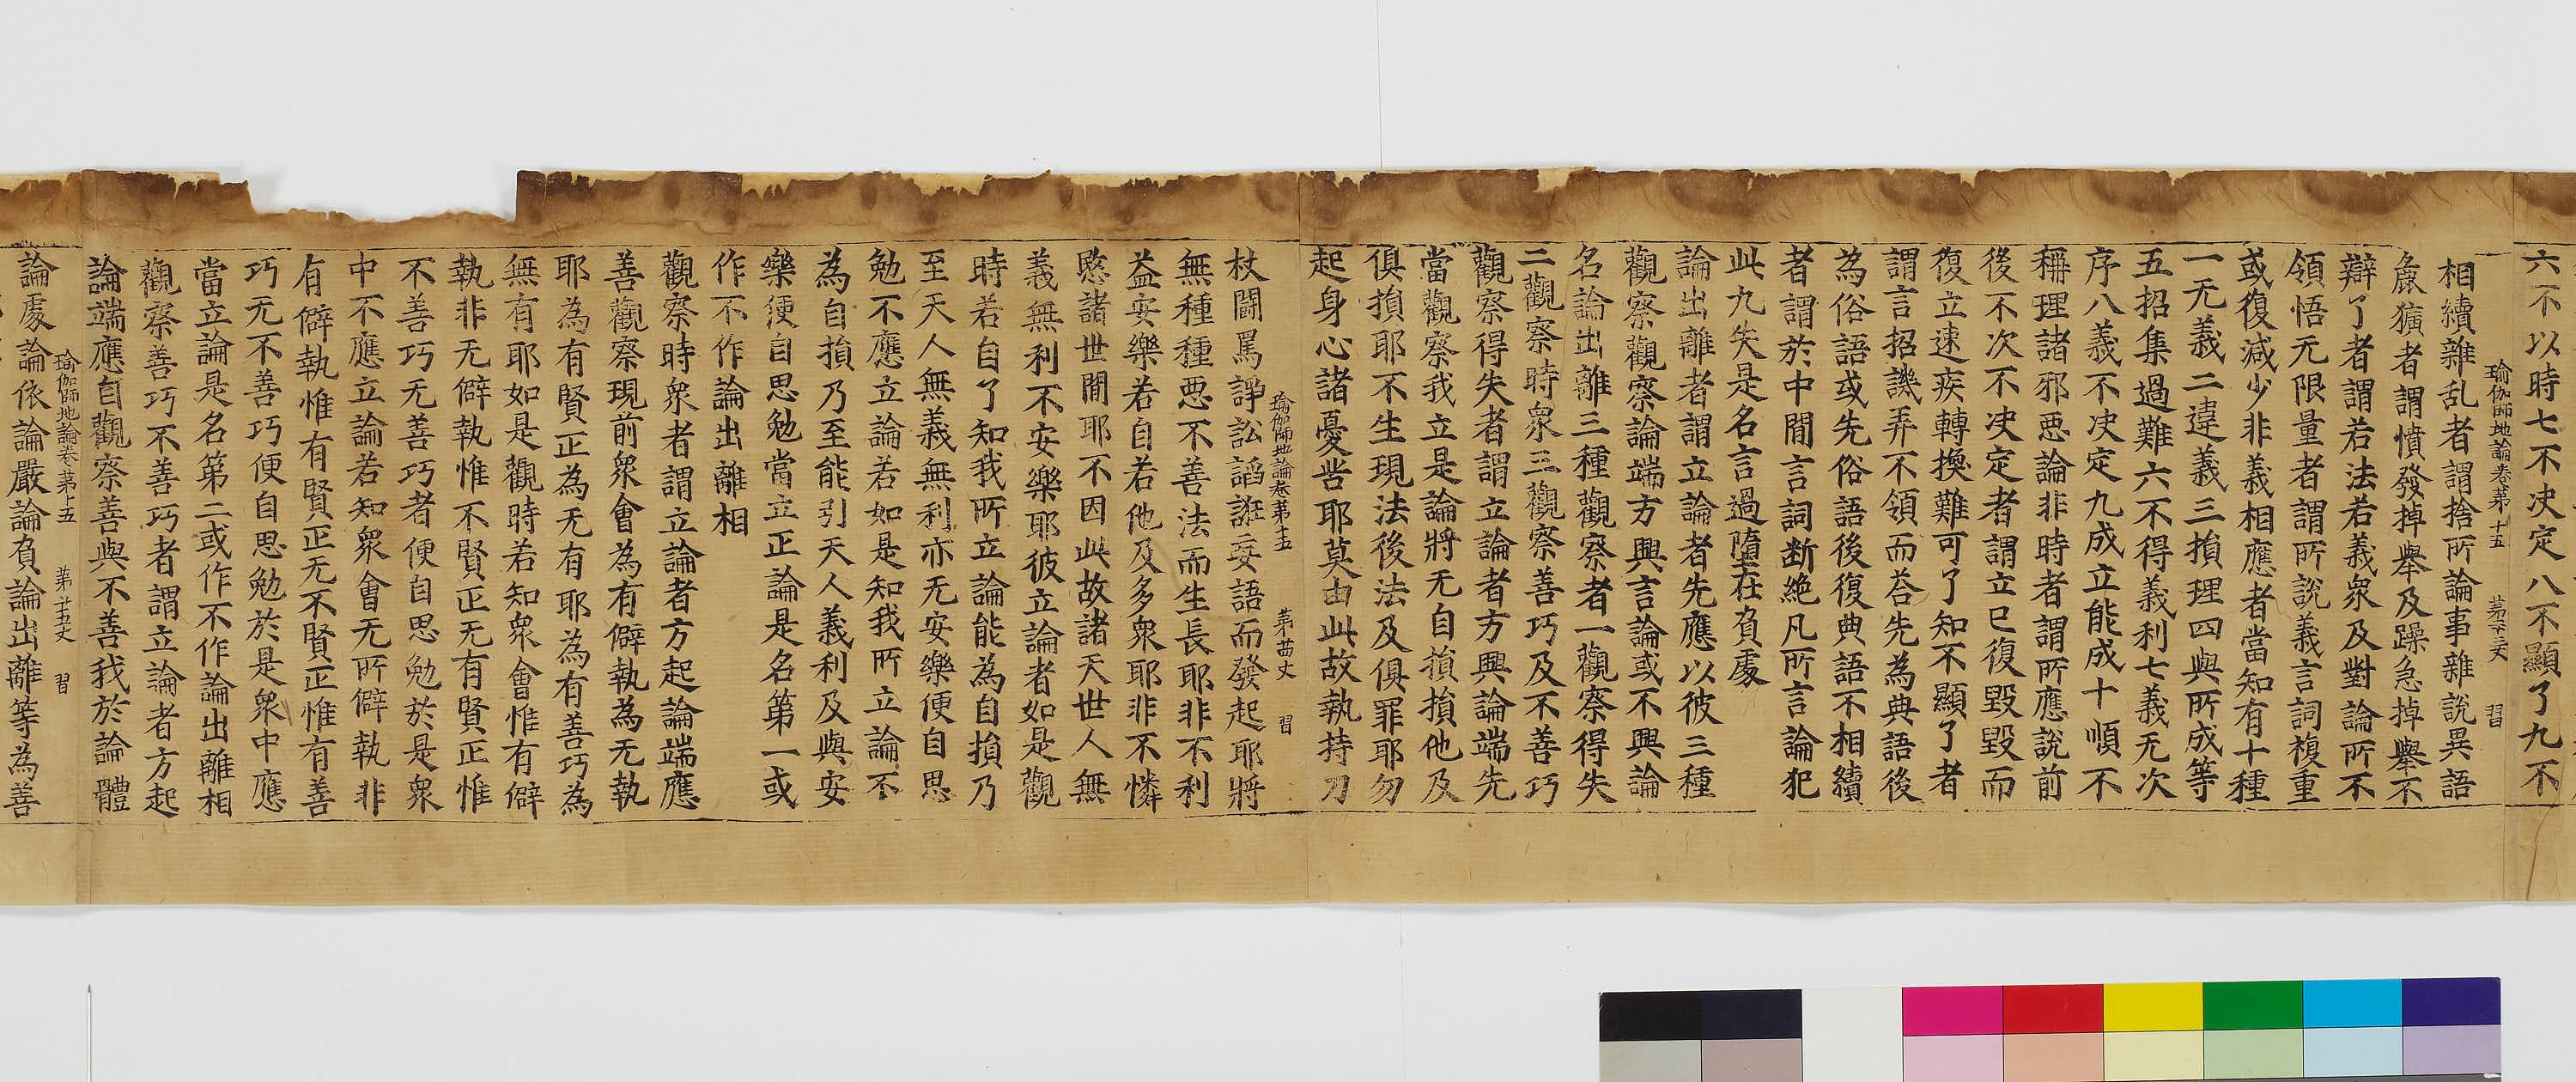 六不以時七不决定八不顯了九不
瑜伽師地論卷第十五 第廿三丈 習
相續雜乱者謂捨所論事雜說異語
麁獷者謂憤發掉舉及躁急掉舉不
辯了者謂若法若義衆及對論所不
領悟无限量者謂所說義言詞複重
或復減少非義相應者當知有十種
一无義二違義三損理四與所成等
五招集過難六不得義利七義无次
序八義不决定九成立能成十順不
稱理諸邪惡論非時者謂所應說前
後不次不决定者謂立已復毀毀而
復立速疾轉換難可了知不顯了者
謂言招譏弄不領而荅先為典語後
為俗語或先俗語後復典語不相續
者謂於中間言詞断絶凡所言論犯
此九失是名言過墮在負處
論出離者謂立論者先應以彼三種
觀察觀察論端方興言論或不興論
名論出離三種觀察者一觀察得失
二觀察時衆三觀察善巧及不善巧
觀察得失者謂立論者方興論端先
當觀察我立是論將无自損損他及
俱損耶不生現法後法及俱罪耶勿
起身心諸憂苦耶莫由此故執持刀
瑜伽師地論卷第十五 第廿四丈 習
杖鬪罵諍訟謟誑妄語而發起耶將
無種種惡不善法而生長耶非不利
益安樂若自若他及多衆耶非不憐
愍諸世間耶不因此故諸天世人無
義無利不安樂耶彼立論者如是觀
時若自了知我所立論能為自損乃
至天人無義無利亦无安樂便自思
勉不應立論若如是知我所立論不
為自損乃至能引天人義利及與安
樂便自思勉當立正論是名第一或
作不作論出離相
觀察時衆者謂立論者方起論端應
善觀察現前衆會為有僻執為无執
耶為有賢正為无有耶為有善巧為
無有耶如是觀時若知衆會惟有僻
執非无僻執惟不賢正无有賢正惟
不善巧无善巧者便自思勉於是衆
中不應立論若知衆會无所僻執非
有僻執惟有賢正无不賢正惟有善
巧无不善巧便自思勉於是衆中應
當立論是名第二或作不作論出離相
觀察善巧不善巧者謂立論者方起
論端應自觀察善與不善我於論體
瑜伽師地論卷第十五 第廿五丈 習
論處論依論嚴論負論出離等為善